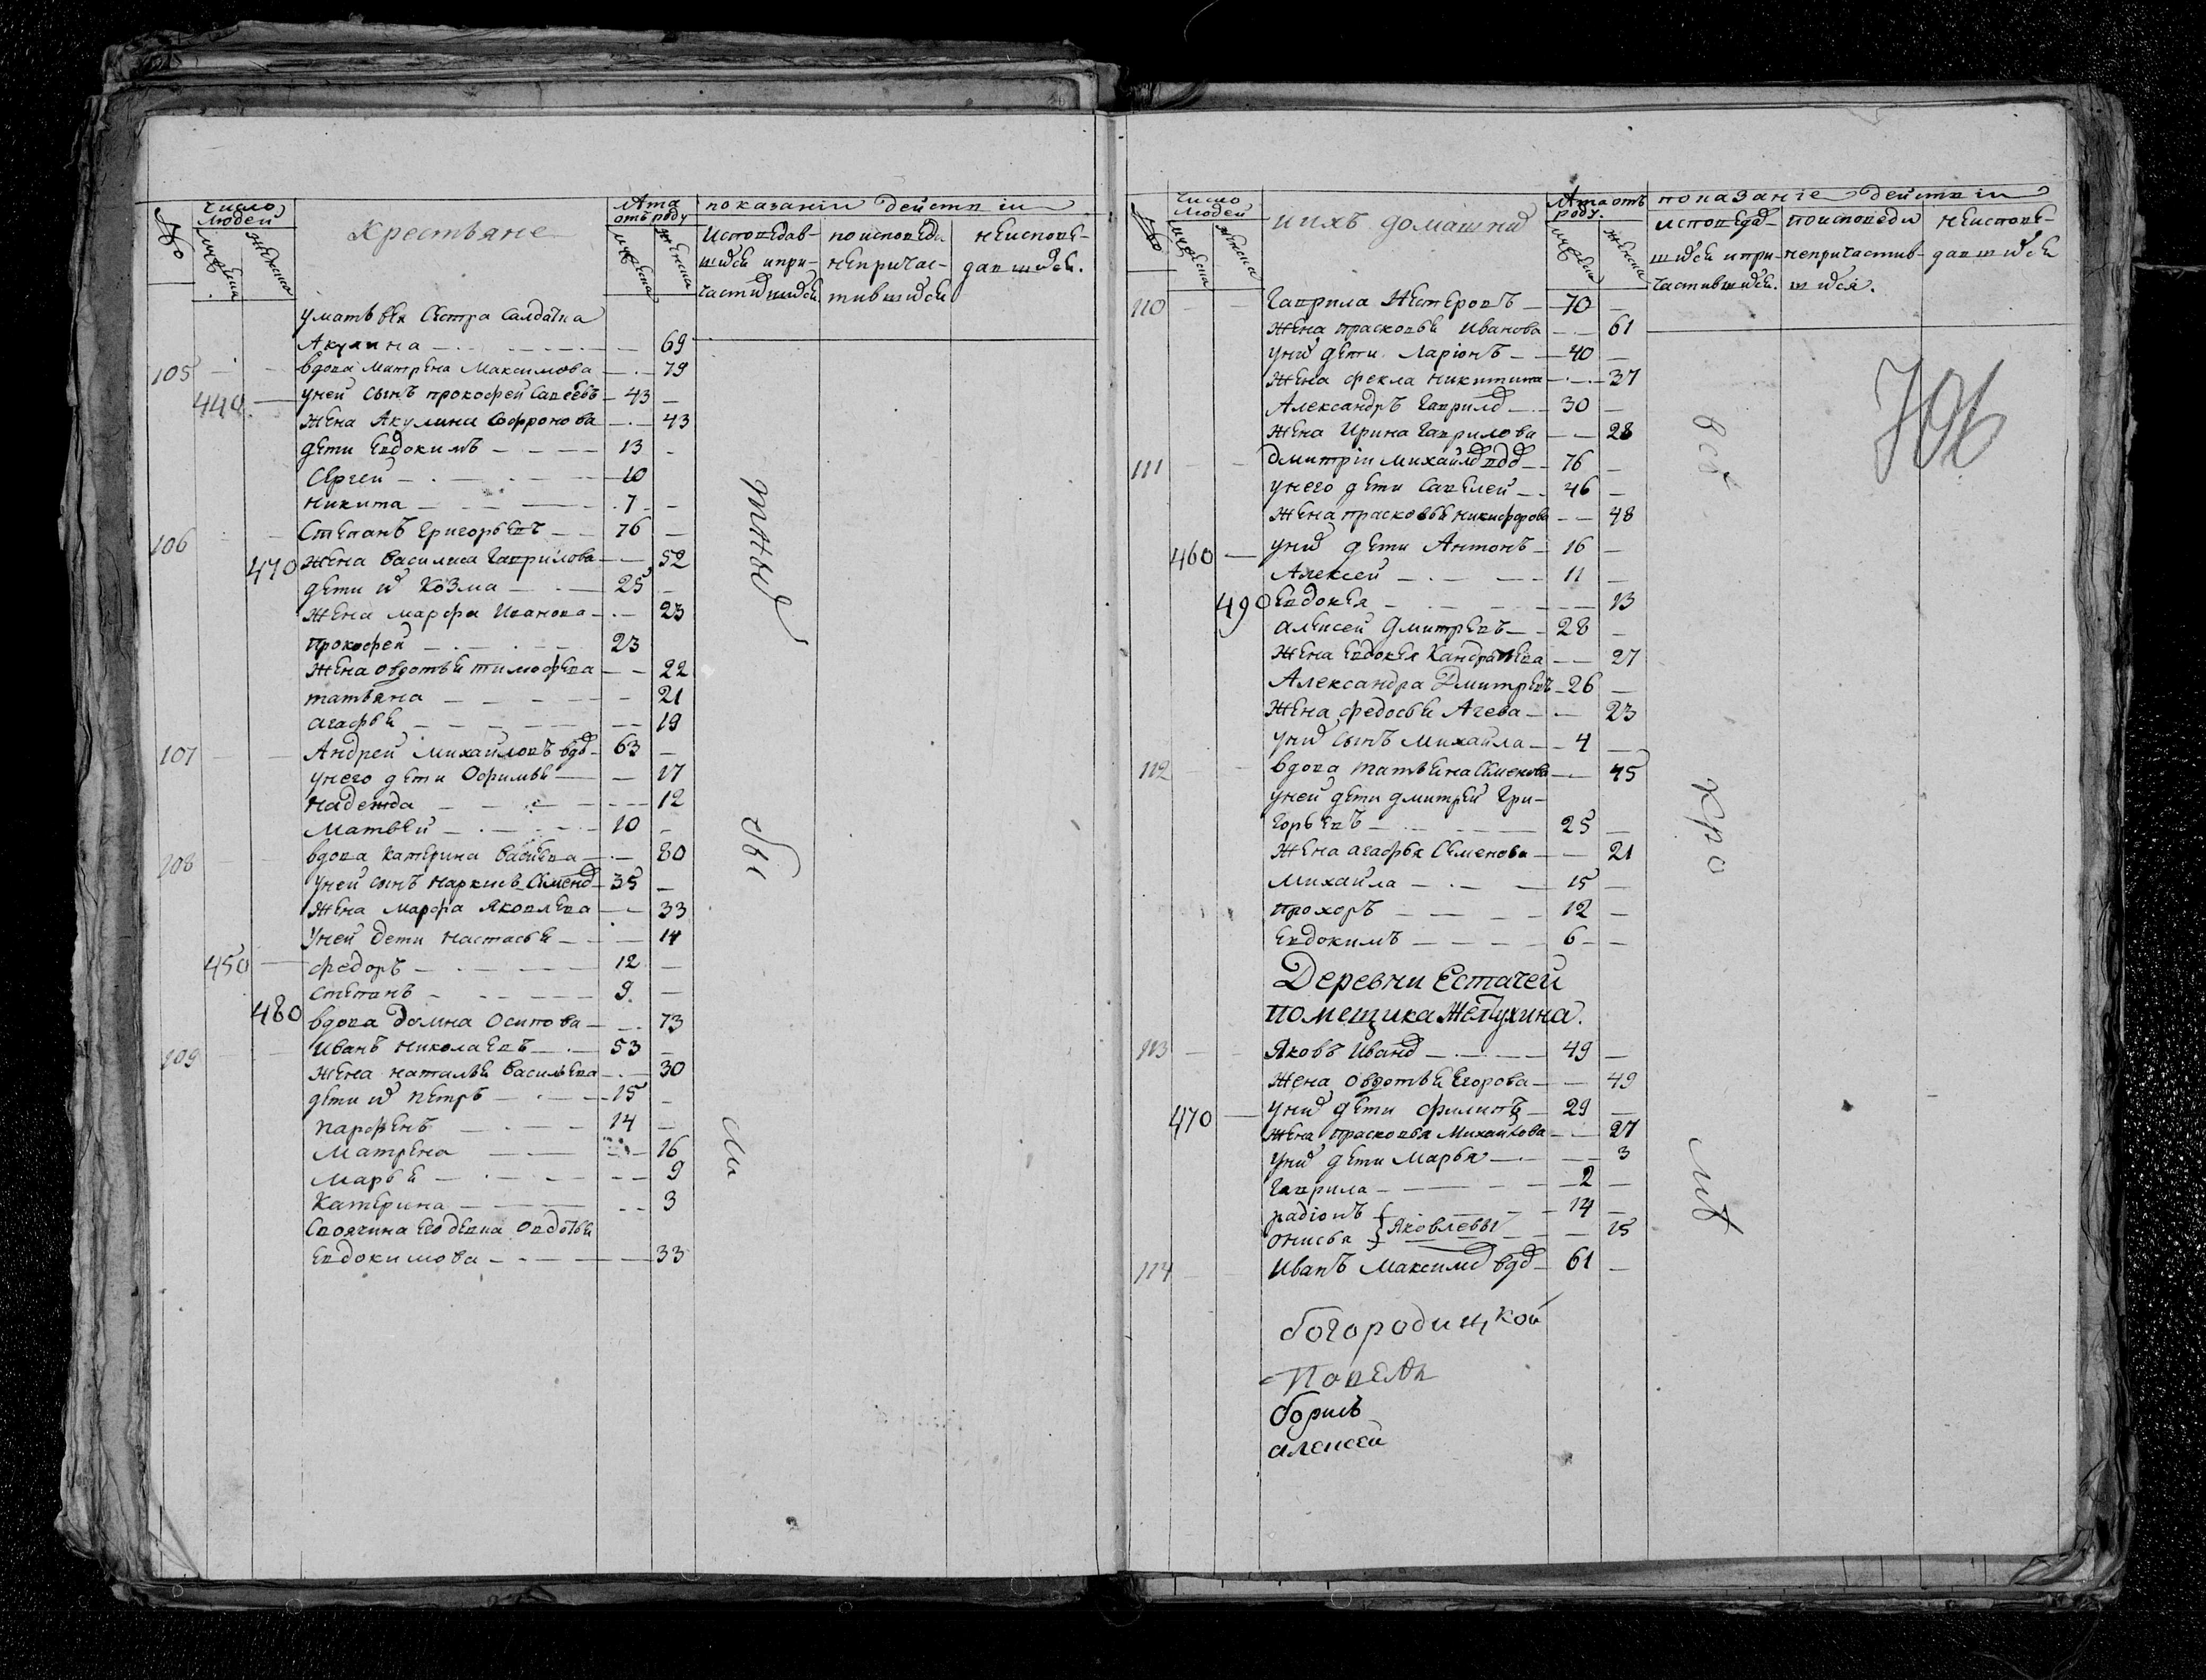 число людей
мужеска
женска
Крестьяне
лѣта отъ роду
мужеска
женска
показаніи действіи
исповедав-
шихся и при-
частившихся
по исповеди
непричас-
тившихся
неисповѣ-
давшихся.
у матвея сестра салдатка
Акулина 69
105 вдова матрена Максимова 79
440 у ней сынъ прокофей савеевъ 43
жена Акулина Софронова 43
дети Евдокимъ 13
Сергеи 10
никита 7
106 Степанъ Григорьевъ 76
470 жена василиса Гаврилова 52
дети их Козма 25
жена марфа Иванова 23
прокофеи 23
жена овдотья тимофева 22
татьяна 21
агафья 19
107 Андреи михаиловъ вдв 63
у него дети Офимья 17
надежда 12
матвеи 10
108 вдова катерина васиева 80
у ней сынъ наркисъ Семенов 35
жена марфа яковлева 33
у ней дети настасья 14
450 федоръ 12
степанъ 9
480 вдова домна осипова 73
109 Иванъ николаевъ 53
жена наталья василева 30
дети их петръ 15
парфенъ 14
матрена 16
марья 9
катерина 3
своячина его девка овдотья
Евдокимова 33
тивый
обы
ли
число людей
мужеска
женска
и ихъ домашних
лѣта отъ роду.
мужеска
женска
показаніе действіи
исповедав-
шихся и при-
частившихся.
по исповеди
непричастив-
шихся.
неисповѣ-
давшихся
706
110 Гаврила Нестеровъ 70
жена прасковья Иванова 61
у них дети Ларіонъ 40
жена фекла никитина 37
Александръ Гаврилов 30
жена Ирина Гаврилова 28
111 дмитріи михаилов вдв 76
у него дети савелеи 46
жена прасковья никифорова 48
460 у них дети Антонъ 16
Алексеи 11
490 Евдокея 13
алексеи дмитревъ 28
жена Евдокея Кандратева 27
Александра Дмитревъ 26
жена федосья Агева 23
у них сынъ михаила 4
112 вдова татьяна Семенова 45
у ней дети дмитреи Гри-
горьевъ 25
жена агафья Семенова 21
михаила 15
прохоръ 12
Евдокимъ 6
Деревни Естачеи
помещика Желтухина.
113 Яковъ Иванов 49
жена овдотья Егорова 49
470 у них дети филипъ 29
жена прасковья михаилова 27
у них дети марья 3
гаврила 2
радіонъ 14
Яковлевы
онисья 15
114 Иванъ максимов вдв 61
богородицкой
Павелъ
борисъ
алексеи